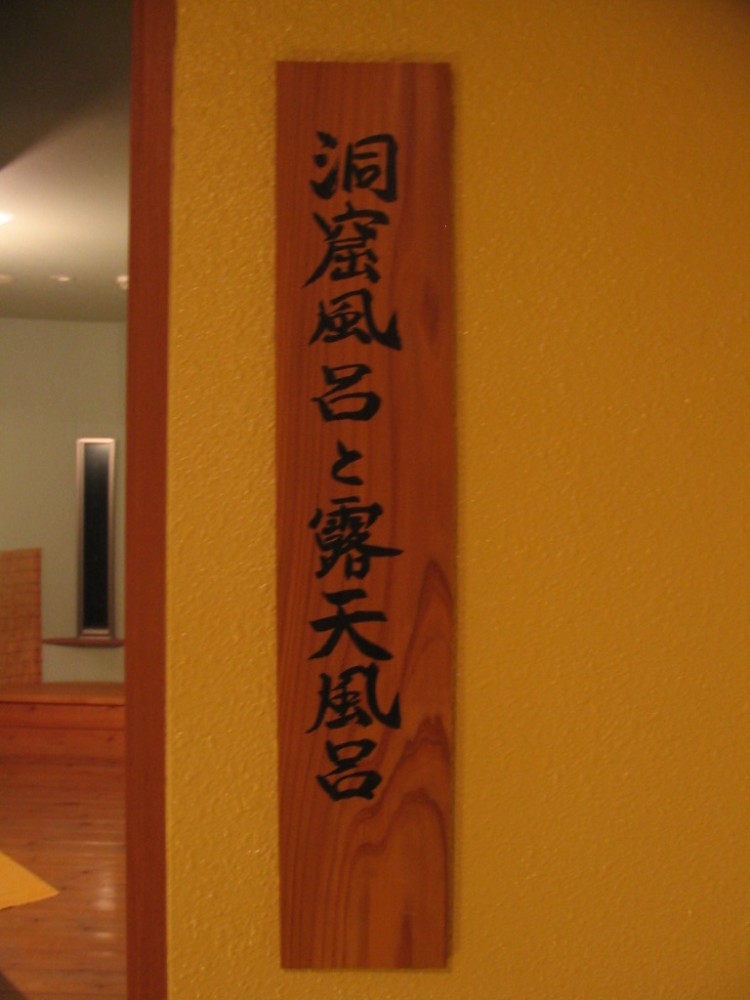 洞窟風呂と露天風呂